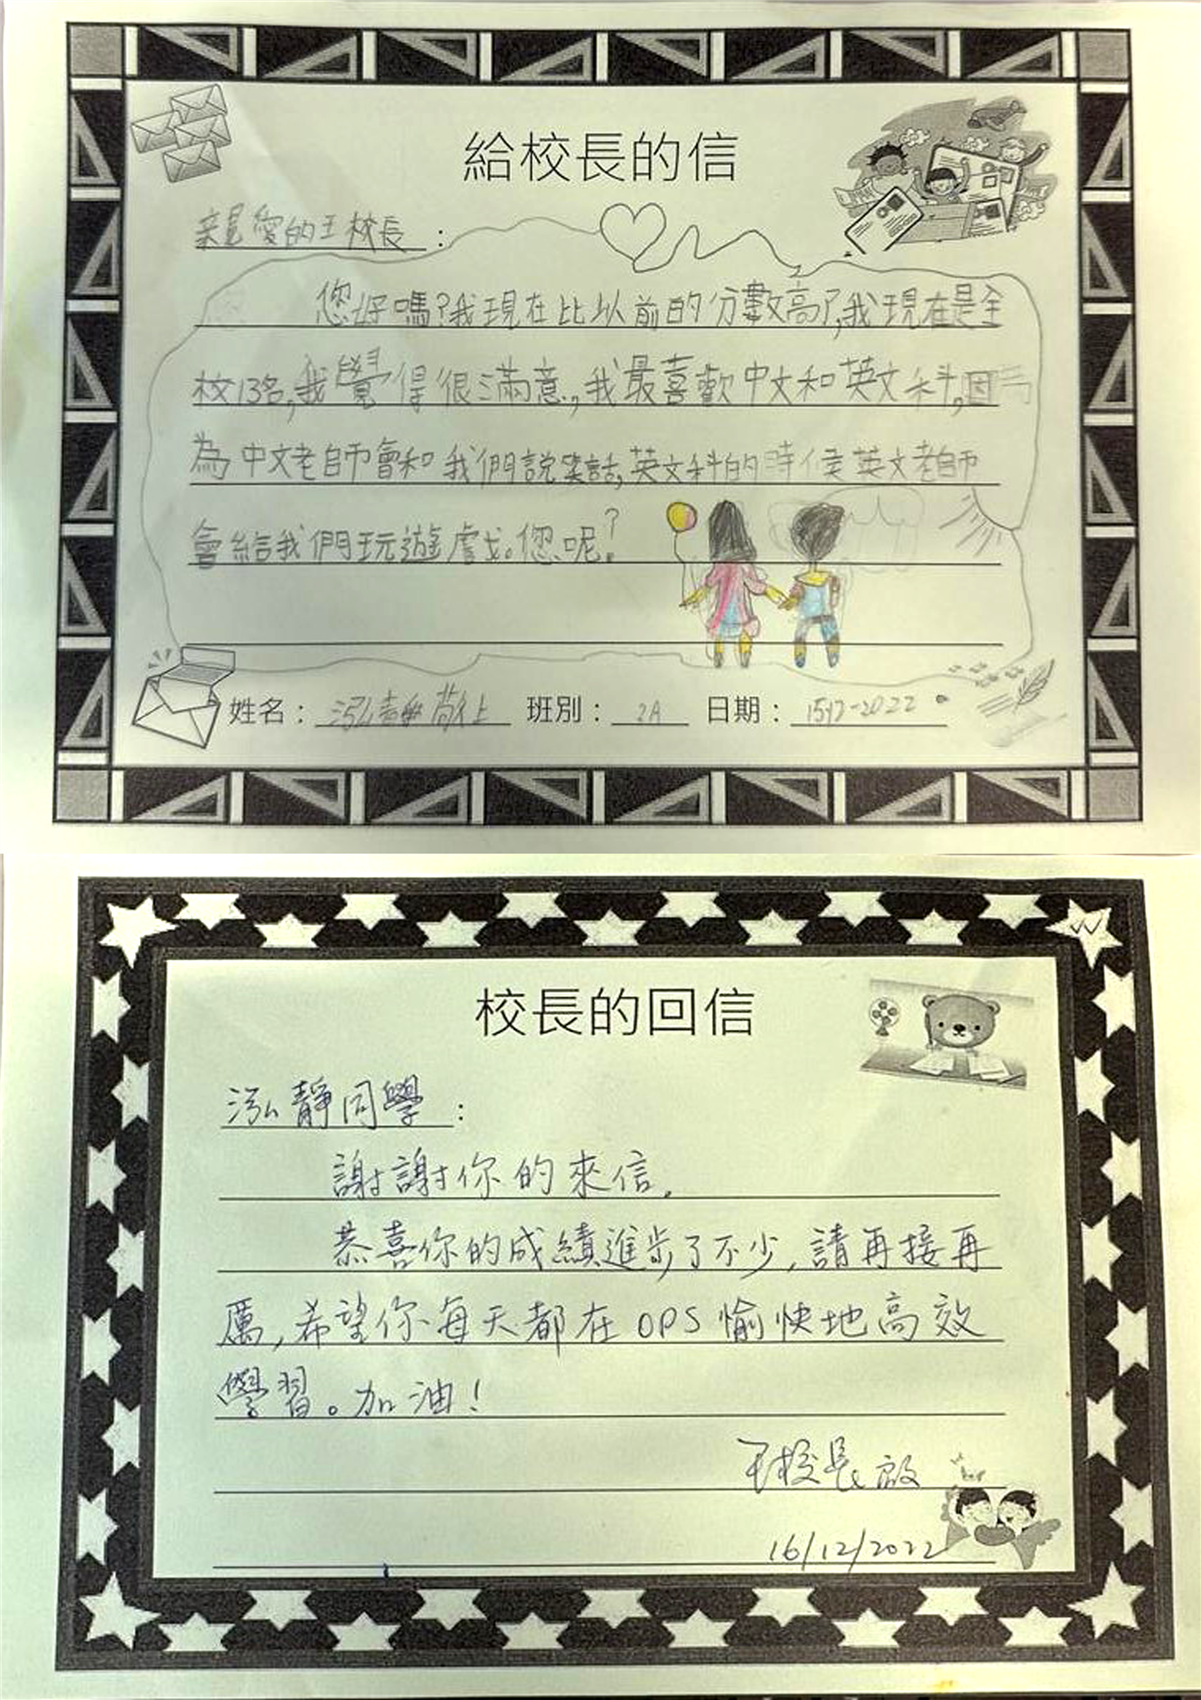 給校長的信
親愛的王校長：
您好嗎?我現在比以前的分數高了,我現在是全
校13名,我覺得很滿意,我最喜歡中文和英文科,因
為中文老師會和我們說笑話,英文科的時候英文老師
會給我們玩遊戲。您呢?
姓名：泓靜敬上 班別：2A 日期：
校長的回信
泓靜同學：
謝謝你的來信.
恭喜你的成績進步了不少,請再接再
厲,希望你每天都在OPS愉快地高效
學習。加油!
王校長啟
16/12/2022